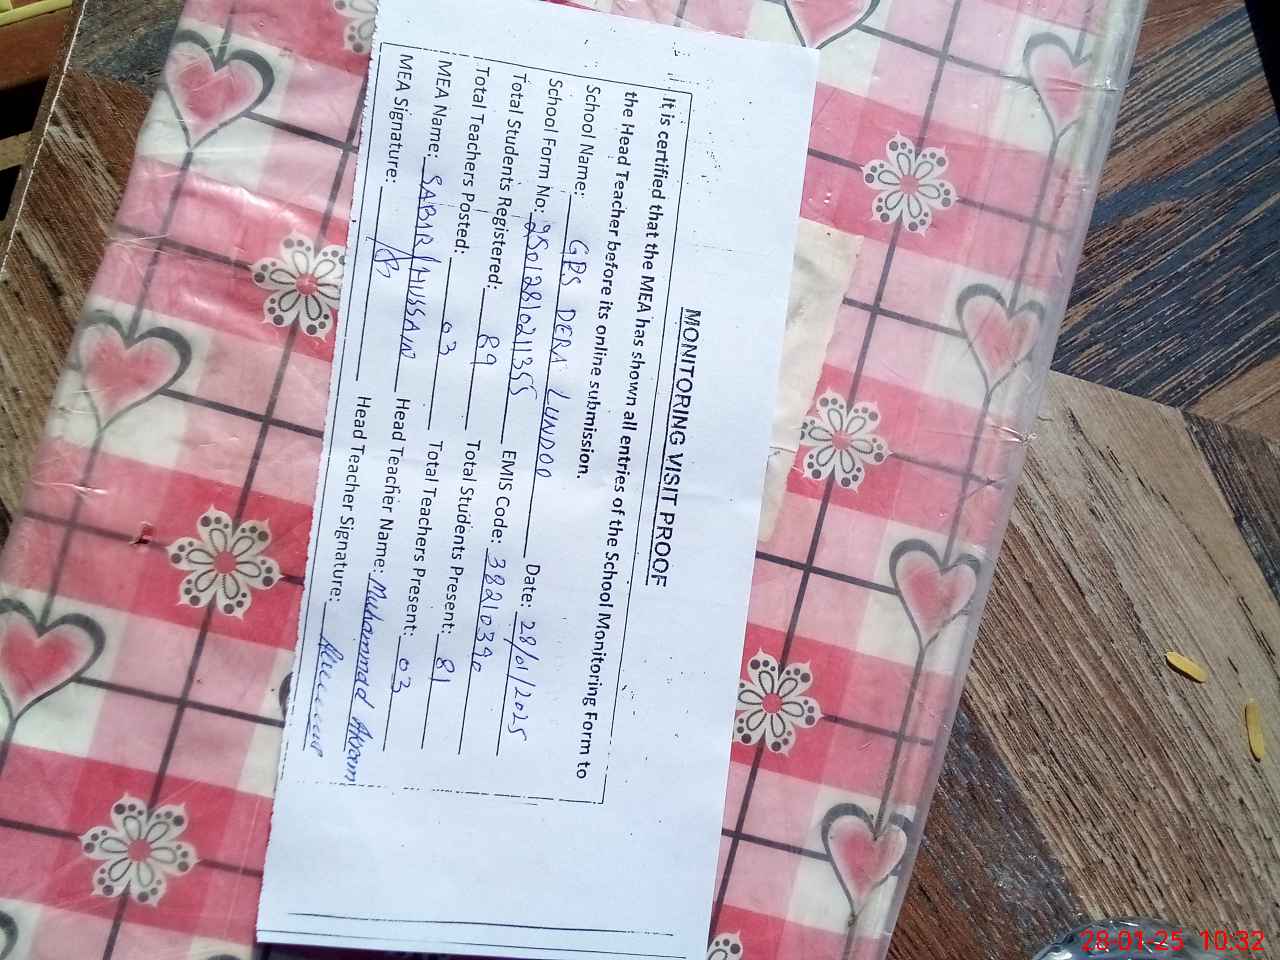 MONITORING VISIT PROOF
It is certified that the MEA has shown all entries of the School Monitoring Form to
the Head Teacher before its online submission.
School Name: GPS DERA LUNDOO Date: 28/01/2025
School Form No: 25012810211355 EMIS Code: 38210390
Total Students Registered: 89 Total Students Present: 81
Total Teachers Posted: 03 Total Teachers Present: 03
MEA Name: SABIR HUSSAIN Head Teacher Name: Muhammad Akram
MEA Signature: Head Teacher Signature:
28-01-25 10:32